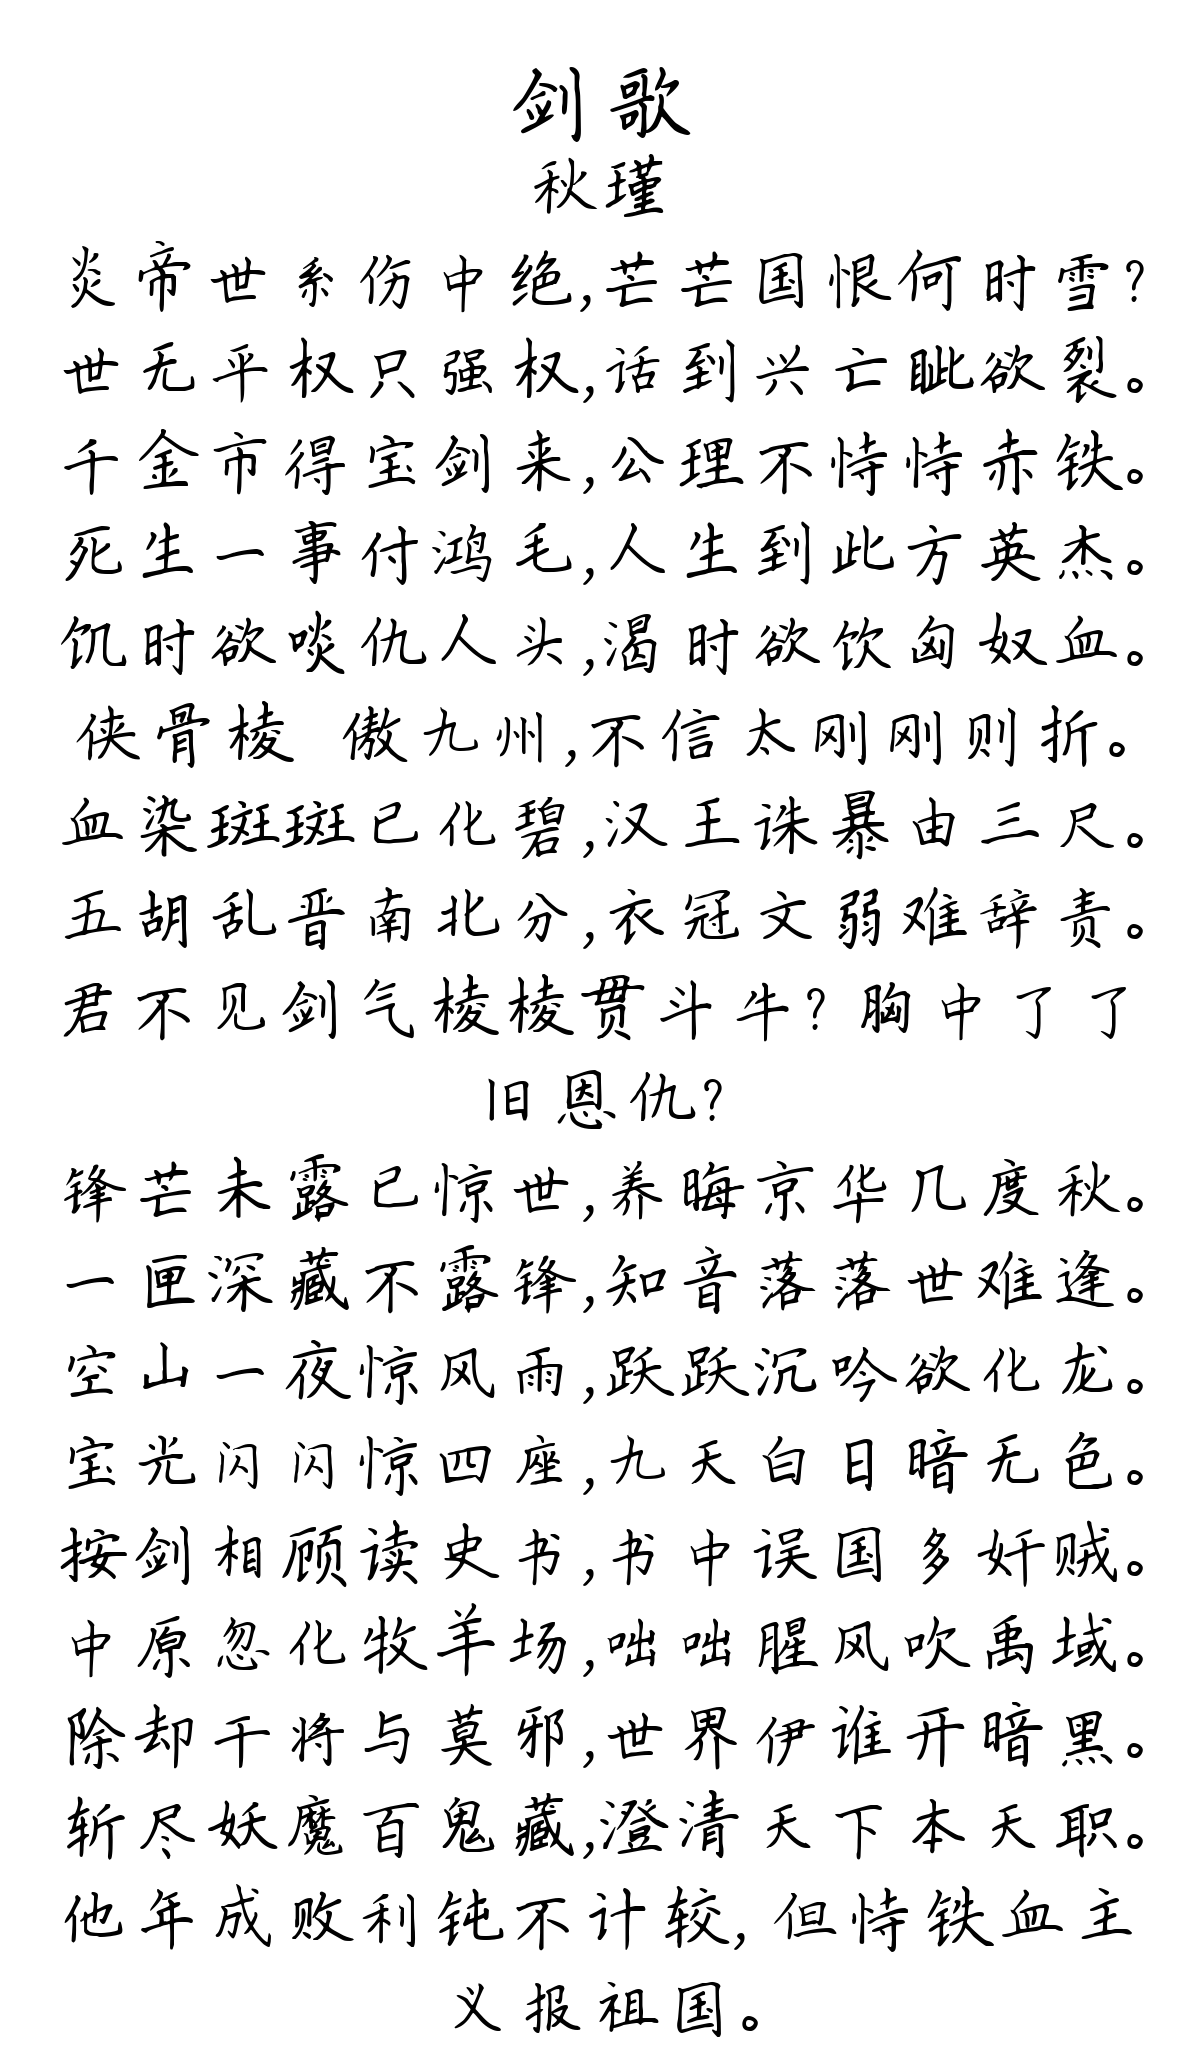 剑歌
秋瑾
炎帝世系伤中绝,芒芒国恨何时雪?
世无平权只强权,话到兴亡眦欲裂。
千金市得宝剑来,公理不恃恃赤铁。
死生一事付鸿毛,人生到此方英杰。
饥时欲啖仇人头,渴时欲饮匈奴血。
侠骨棱 傲九州,不信太刚刚则折。
血染斑斑已化碧,汉王诛暴由三尺。
五胡乱晋南北分,衣冠文弱难辞责。
君不见剑气棱棱贯斗牛?胸中了了
旧恩仇?
锋芒未露已惊世,养晦京华几度秋。
一匣深藏不露锋,知音落落世难逢。
空山一夜惊风雨,跃跃沉吟欲化龙。
宝光闪闪惊四座,九天白日暗无色。
按剑相顾读史书,书中误国多奸贼。
中原忽化牧羊场,咄咄腥风吹禹域。
除却干将与莫邪,世界伊谁开暗黑。
斩尽妖魔百鬼藏,澄清天下本天职。
他年成败利钝不计较,但恃铁血主
义报祖国。